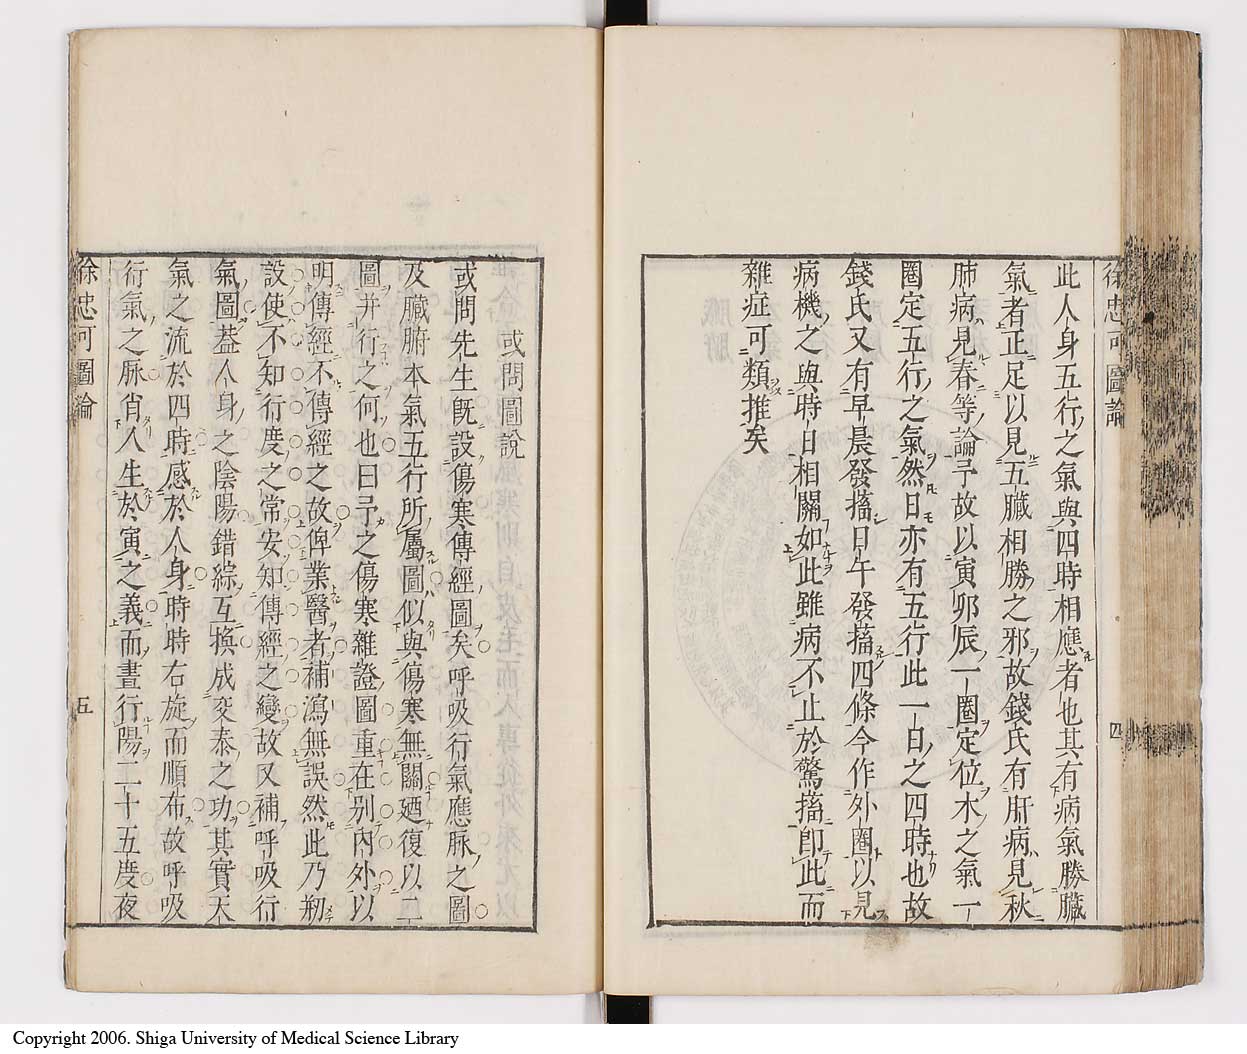 徐忠可圖論
四
此人身五行之氣與四時相應者也其有病氣勝臟
氣者正足以見五臟相勝之邪故錢氏有肝病見秋
肺病見春等論予故以寅卯辰一圈定位木之氣一
圈定五行之氣然日亦有五行此一日之四時也故
錢氏又有早晨發搐日午發搐四條今作外圈以見
病機之與時日相關如此雖病不止於驚搐即此而
雜症可類推矣
或問圖說
或問先生既設傷寒傳經圖矣呼吸行氣應脉之圖
及臟腑本氣五行所屬圖似與傷寒無關廼復以二
圖并行之何也曰予之傷寒雜證圖重在别內外以
明傳經不傳經之故俾業醫者補瀉無誤然此乃初
設使不知行度之常安知傳經之變故又補呼吸行
氣圖葢人身之陰陽錯綜互換成交泰之功其實天
氣之流於四時感於人身時時右旋而順布故呼吸
衍氣之脉肖人生於寅之義而晝行陽二十五度夜
徐忠可圖論
五
Copyright 2006. Shiga University of Medical Science Library